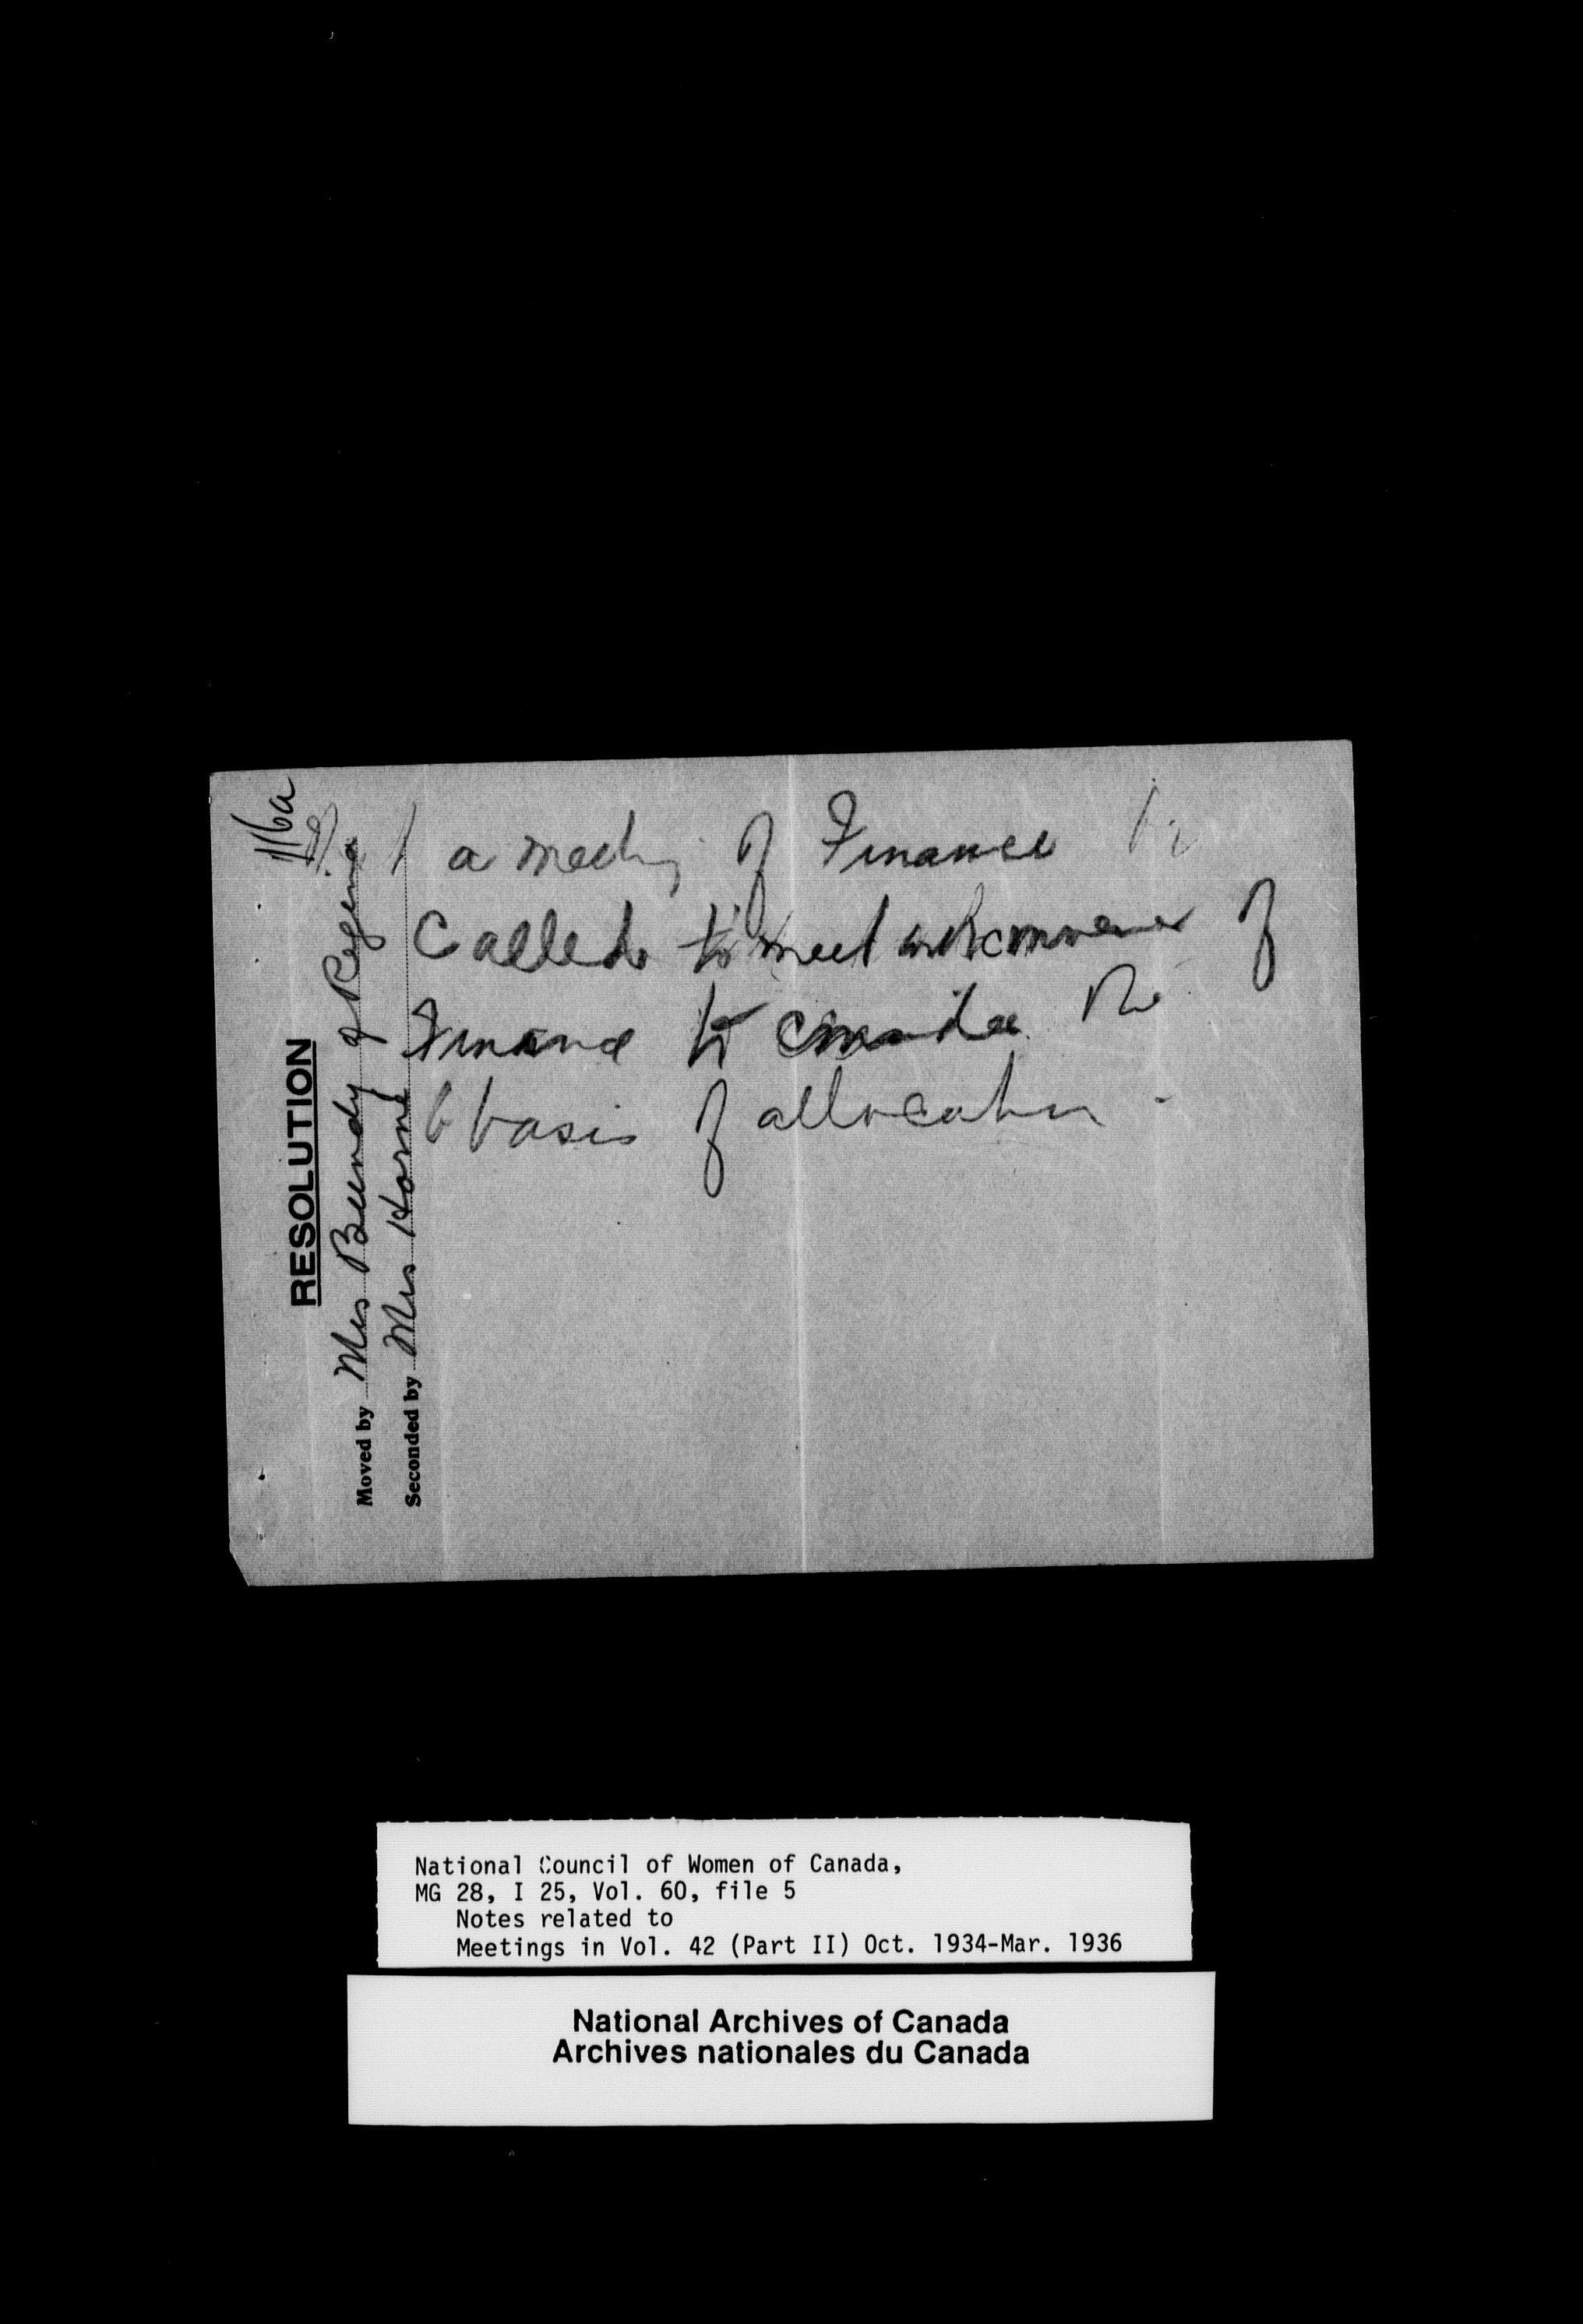 116a
RESOLUTION
Moved by Mrs Bundy of Regina
Seconded by Mrs Horne
That a meeting of Finance be
Called to meet with convener of
Finance to consider the
basis of allocation -
National Council of Women of Canada,
MG 28, I 25, Vol. 60, file 5
Notes related to
Meetings in Vol. 42 (Part II) Oct. 1934-Mar. 1936
National Archives of Canada
Archives nationales du Canada